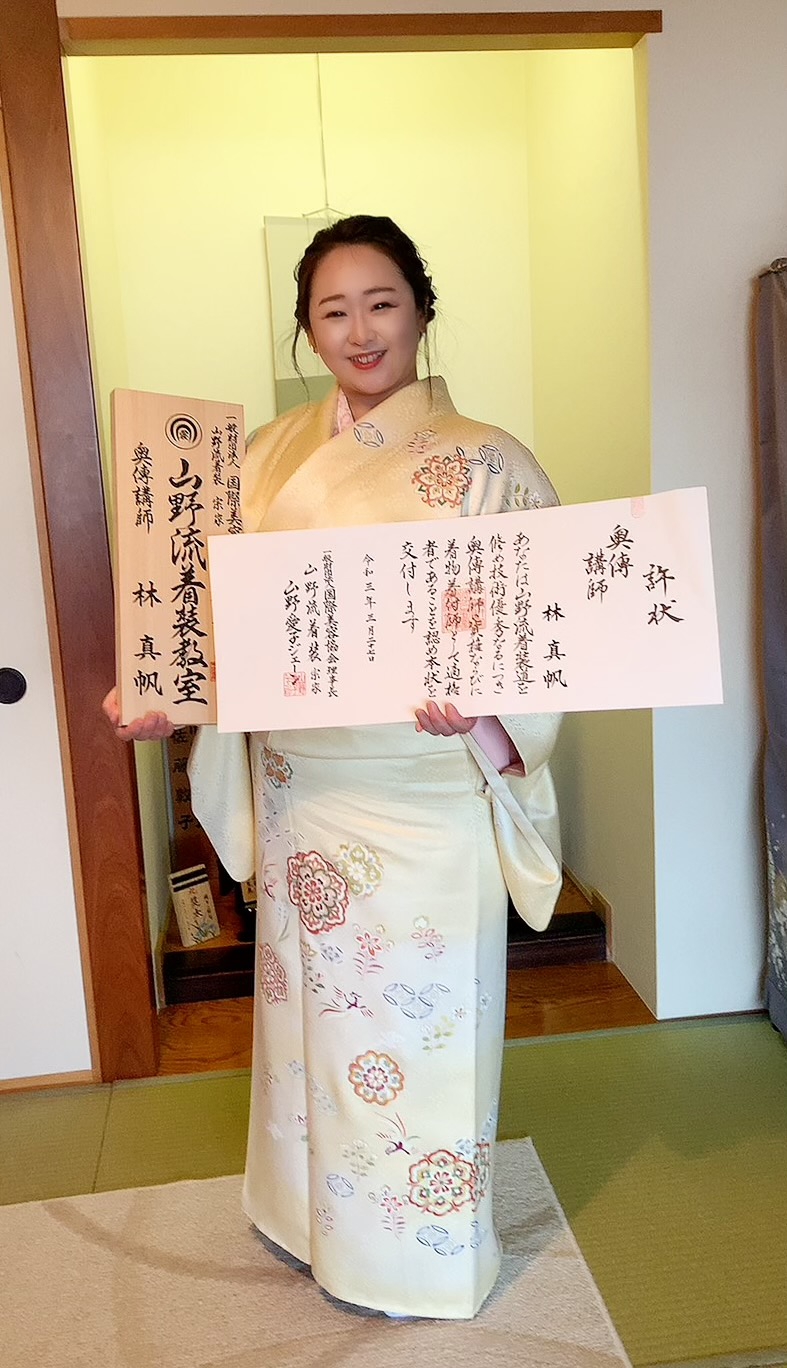 一般財団法人 国際美容
山野流着装 宗家
山野流着装教室
奥傳講師
林 真帆
許状
奥傳
講師
林 真帆
あなたは山野流着装道を
修め技術優秀なるにつき
奥傳講師
着物着付師として適格
者であることを認め本状を
交付します
令和三年三月二十七日
一般財団法人国際美容協会理事長
山野流着装 宗家
山野愛子ジェーン
佐藤敦子